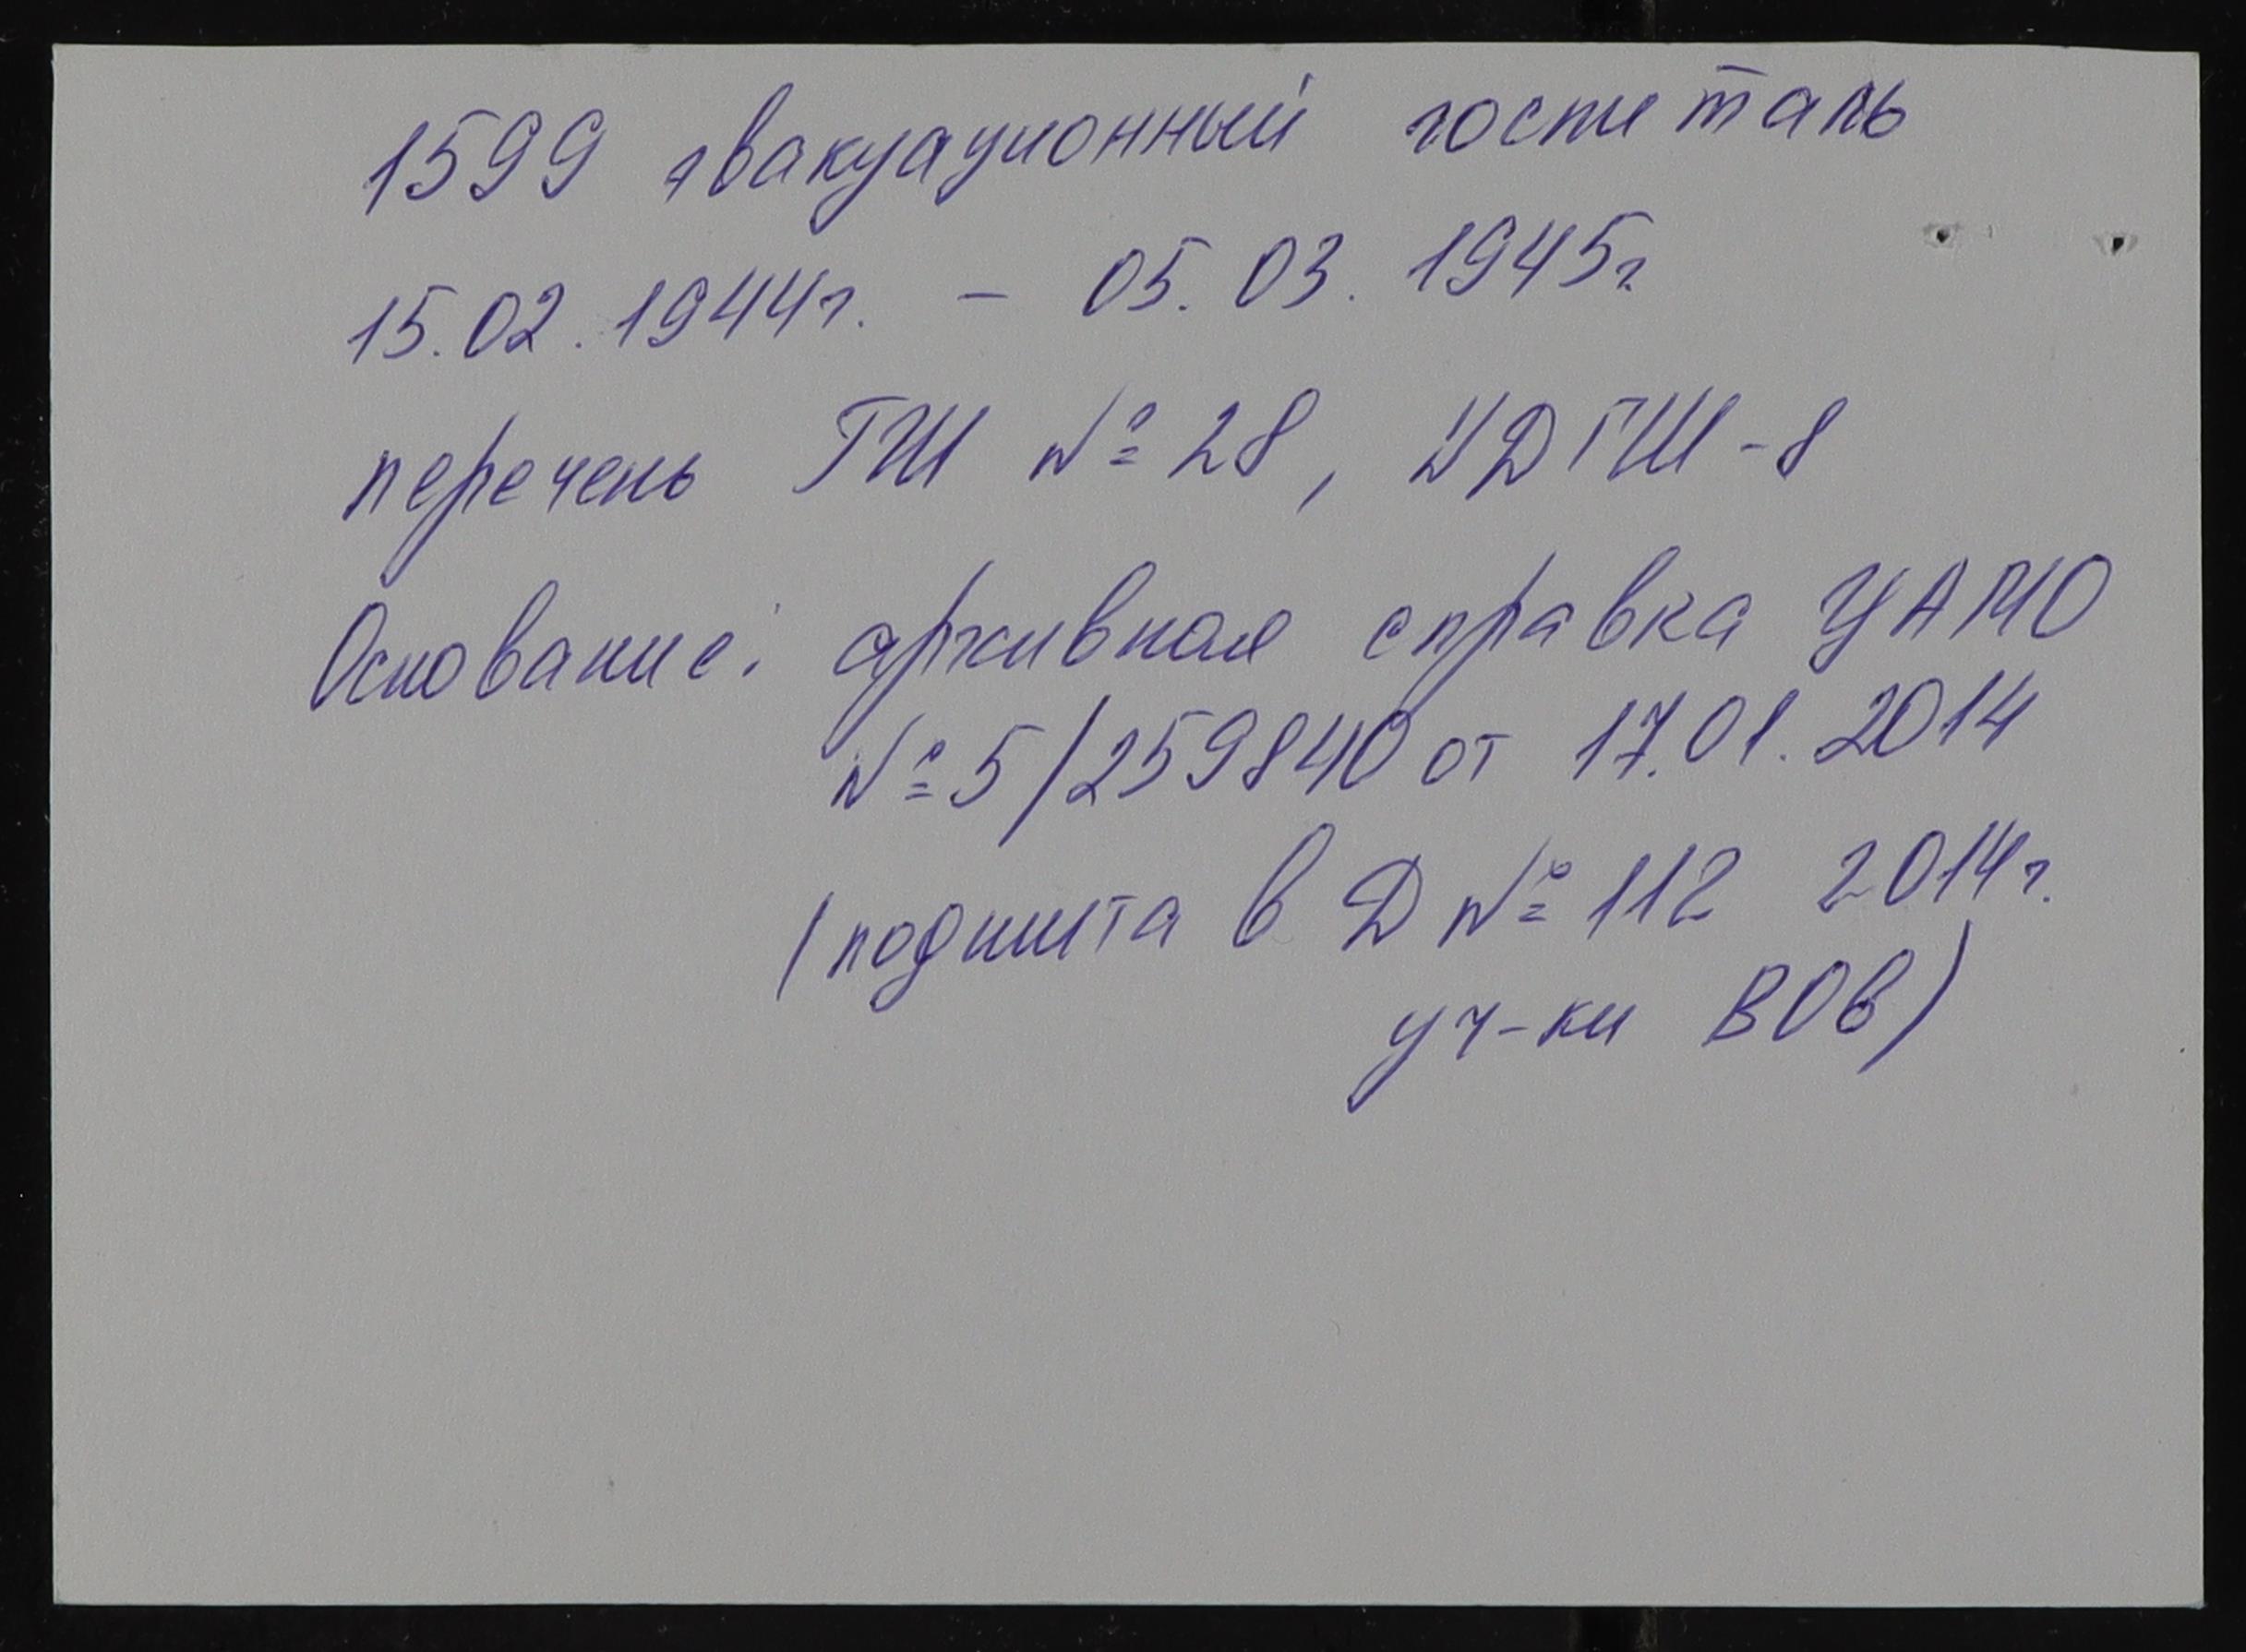 1599 эвакуационный госпиталь
15.02.1944г. – 05.03.1945г.
перечень ГШ № 28, ИДГШ-8
Основание: архивная справка ЦАМО
№ 5/259840 от 17.01.2014
(подшита в Д № 112 2014г.
уч-ки ВОВ)